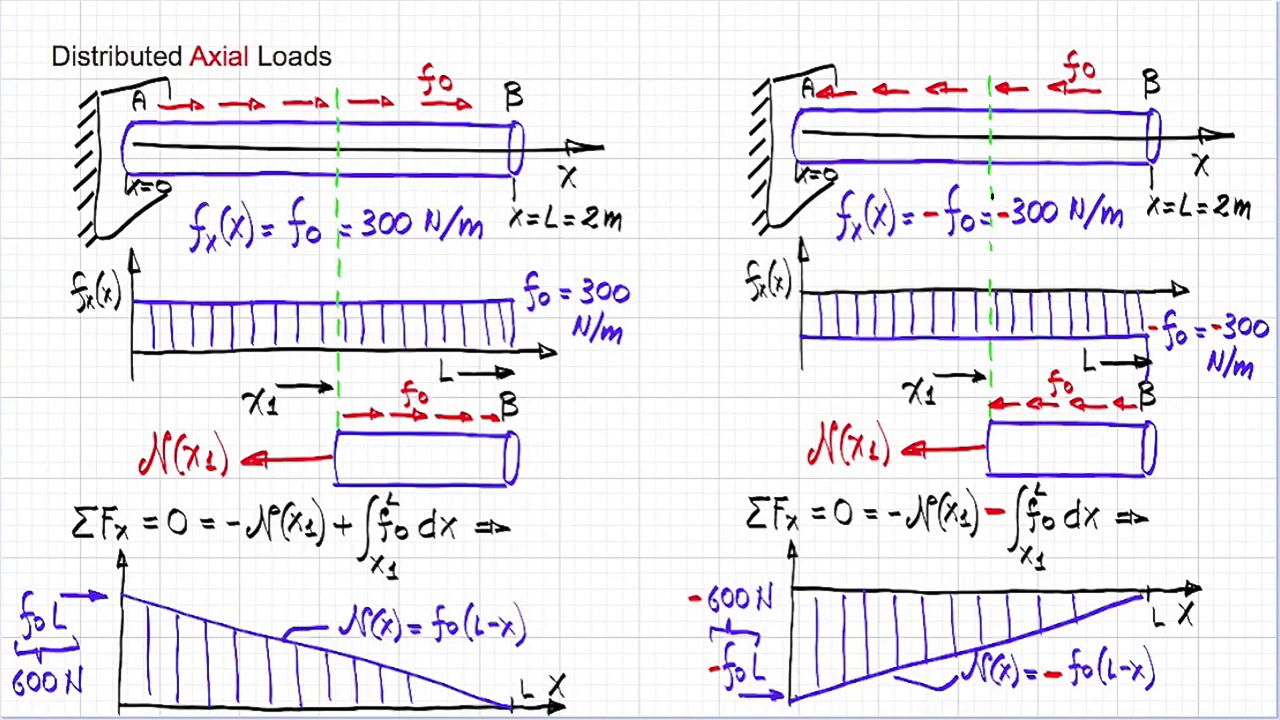 Distributed Axial Loads
A f₀ B
x=0 X
fₓ(x) = f₀ = 300 N/m x = L = 2m
fₓ(x) f₀ = 300 N/m
L
x₁ f₀ B
N(x₁)
ΣFₓ = 0 = -N(x₁) + ∫ₓ₁ᴸ f₀ dx ⇒
f₀L N(x) = f₀(L-x)
600 N
L X
A f₀ B
x=0 X
fₓ(x) = -f₀ = -300 N/m x = L = 2m
fₓ(x) -f₀ = -300 N/m
L
x₁ f₀ B
N(x₁)
ΣFₓ = 0 = -N(x₁) - ∫ₓ₁ᴸ f₀ dx ⇒
-600 N L X
-f₀L N(x) = -f₀(L-x)